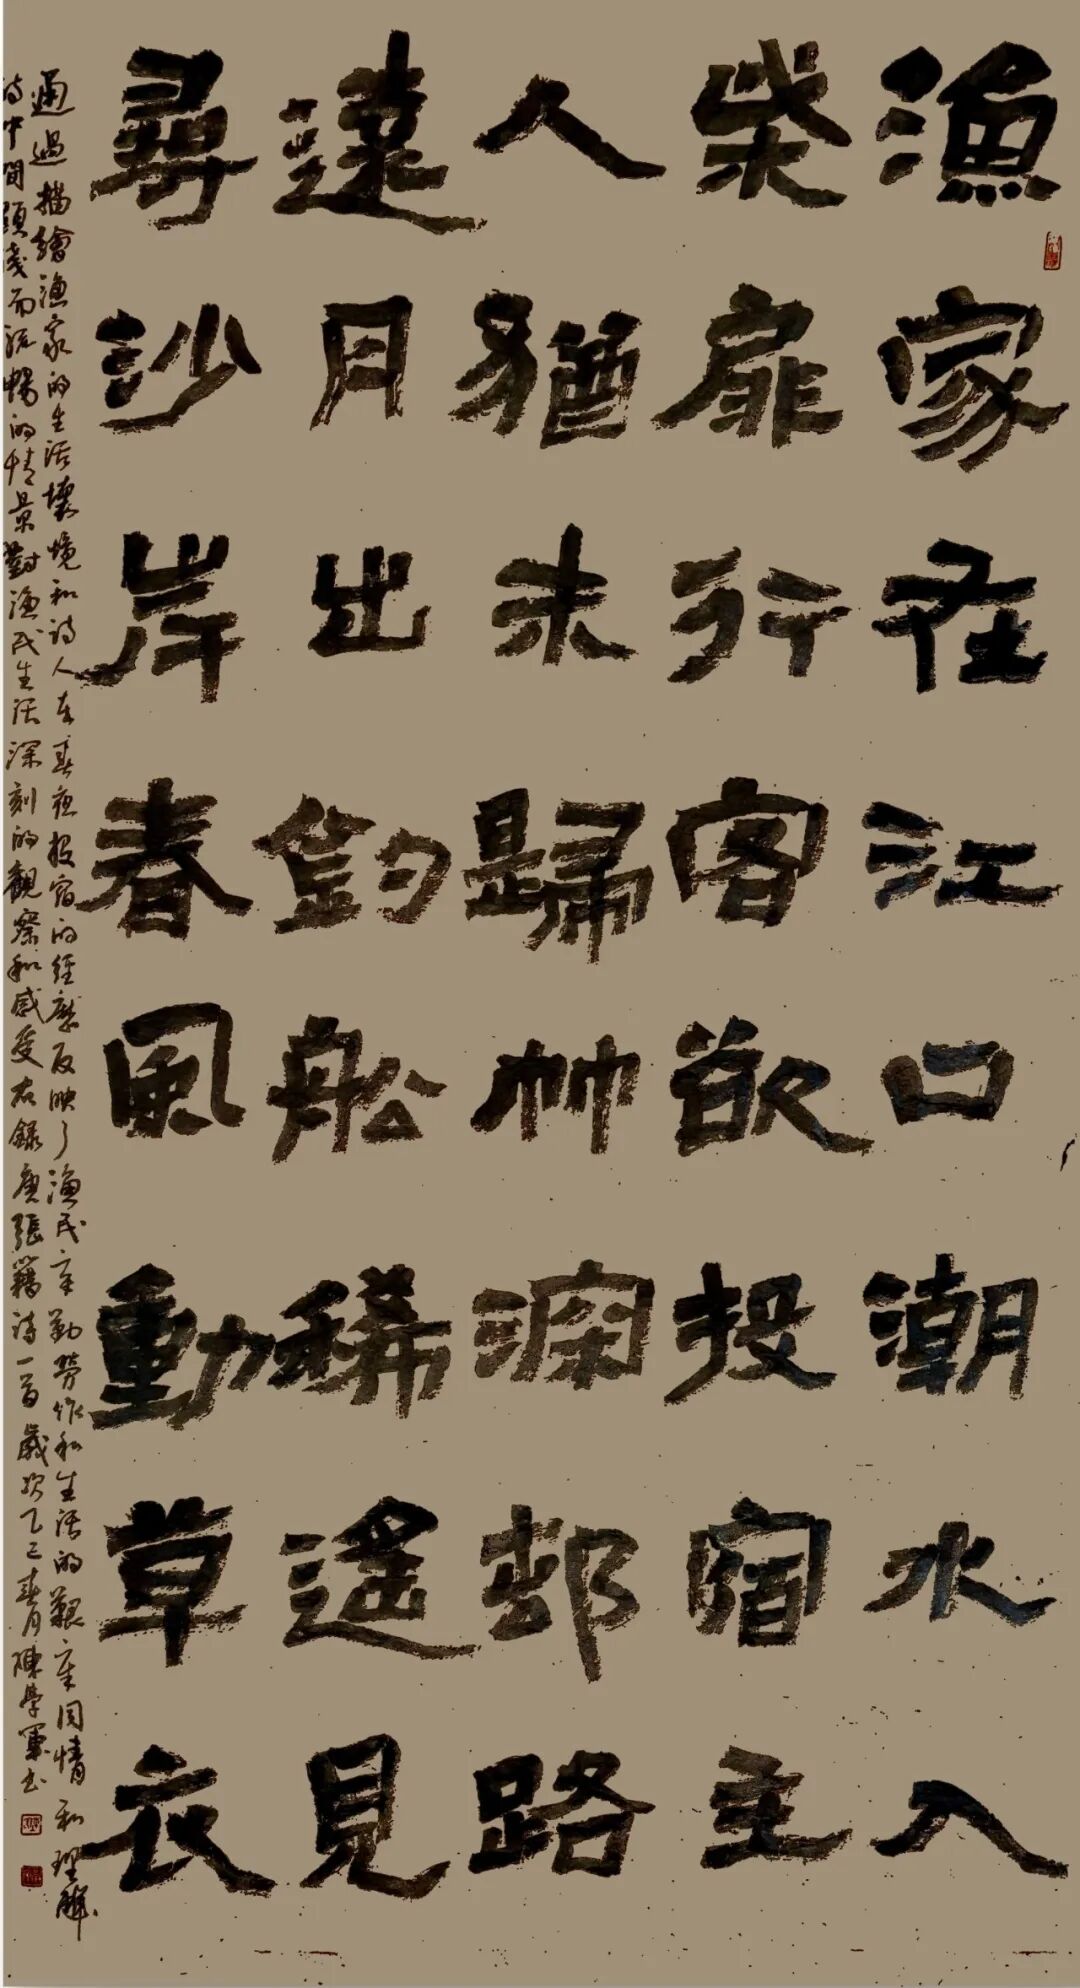 漁家在江口潮水入
柴扉行客欲投宿主
人猶未歸竹深邨路
遠月出釣船稀遙見
尋沙岸春風動草衣
通過描繪漁家的生活壞境和詩人在春夜投宿的經歷反映了漁民辛勤勞作和生活的艱辛同情和理解
詩中間顯淺而流暢的情景對漁民生活深刻的觀察和感受右錄唐張籍詩一首歲次乙巳春月陳學軍書